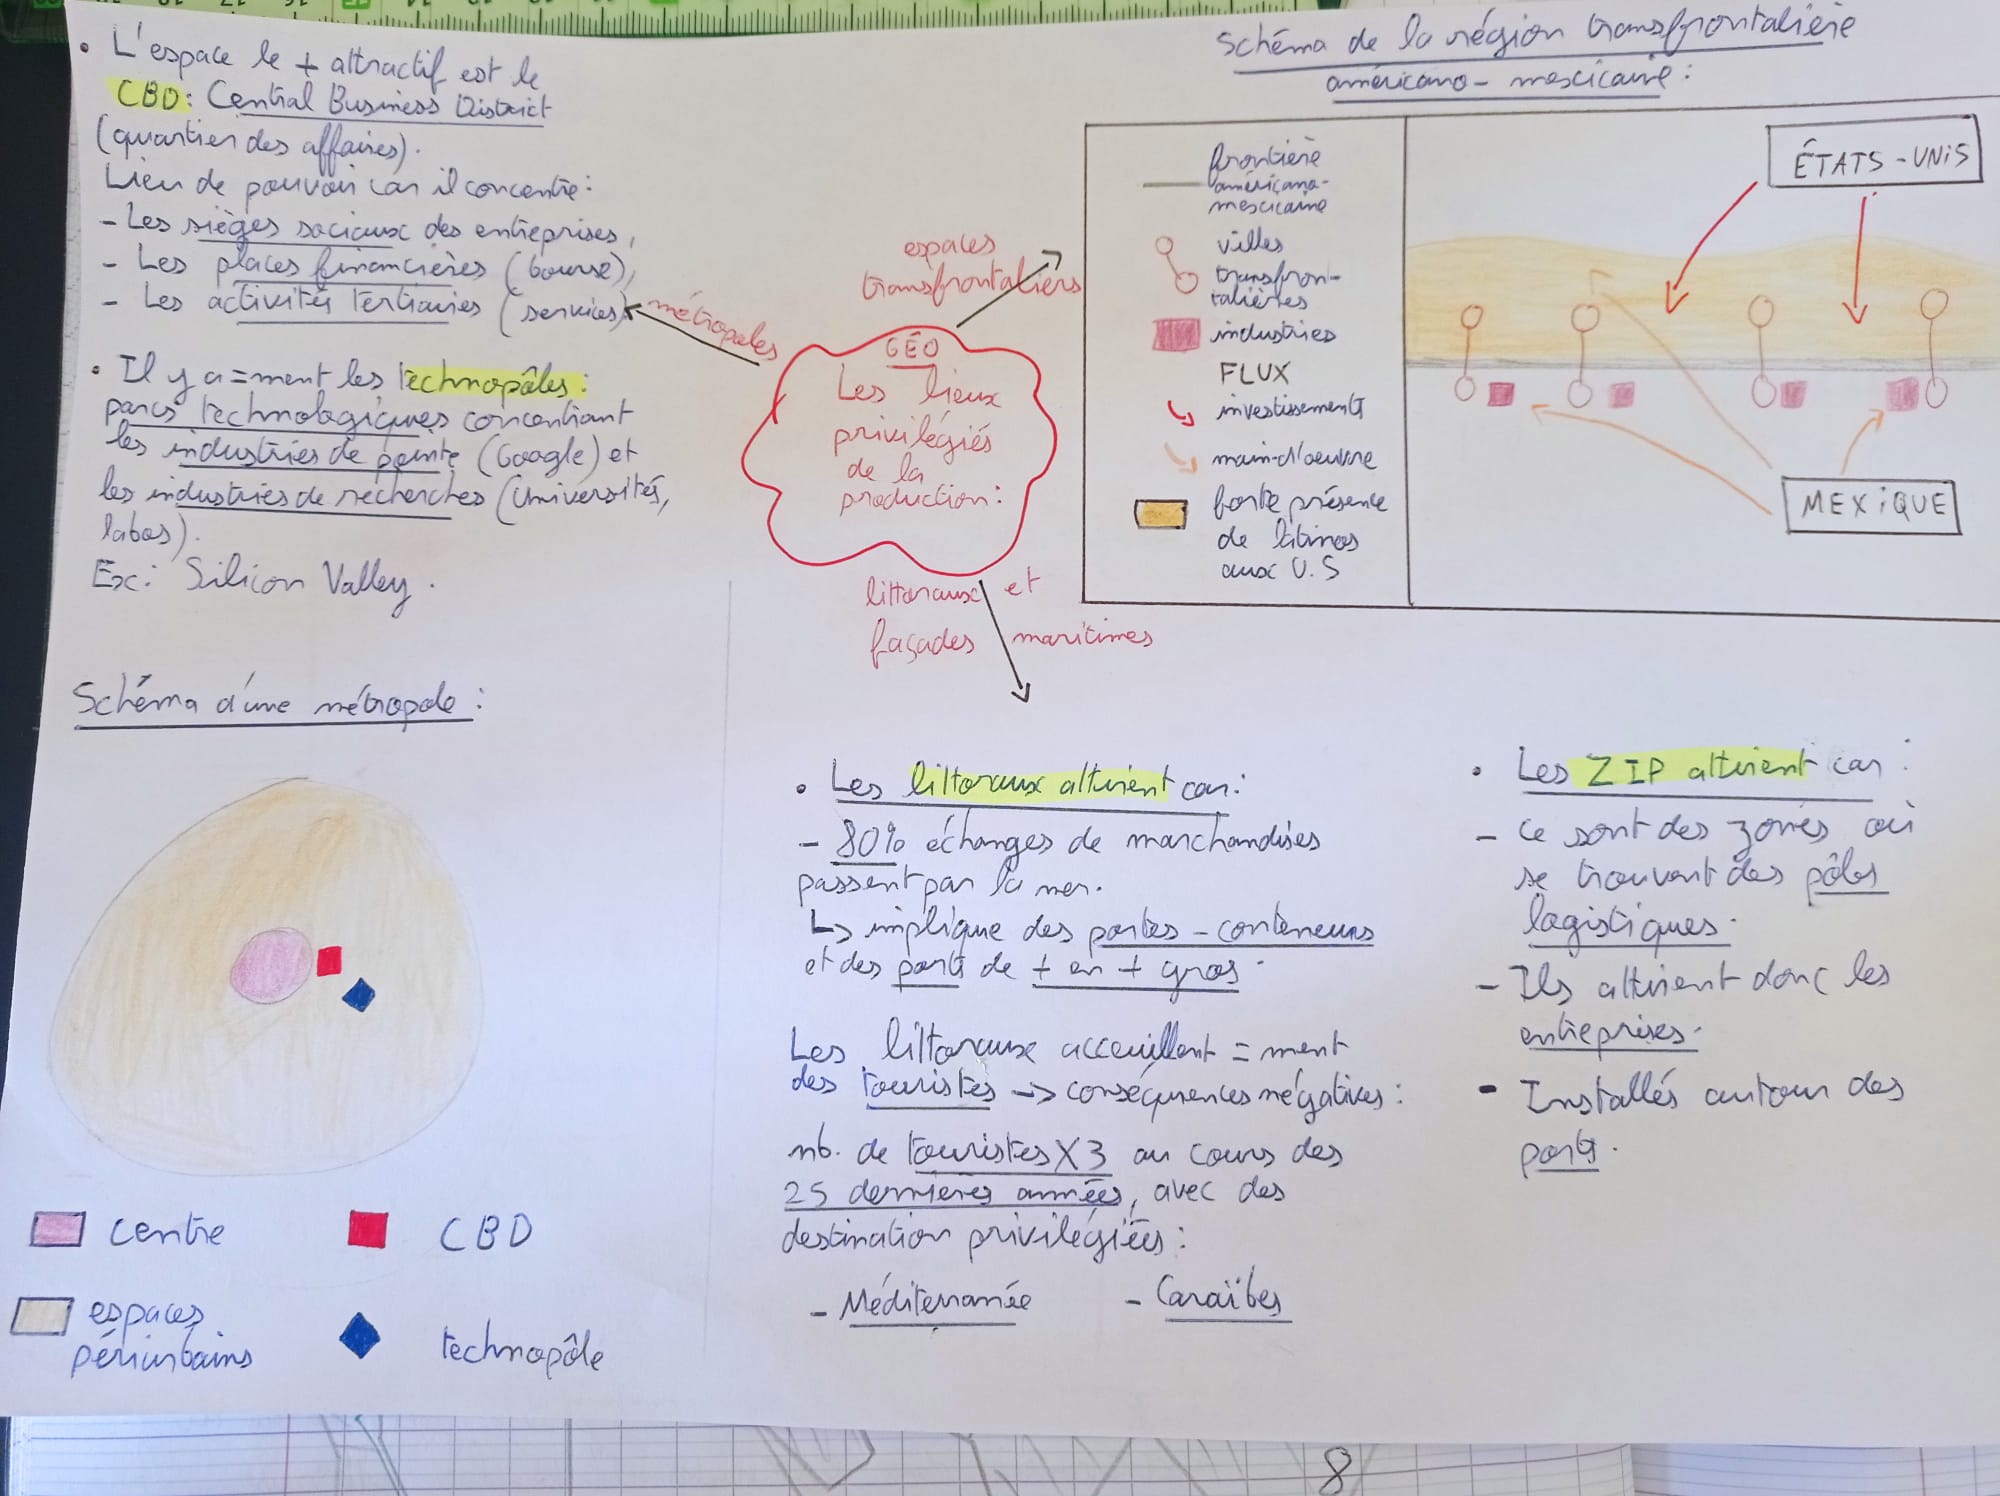 • L'espace le + attractif est le
CBD: Central Business District
(quartier des affaires).
Lieu de pouvoir car il concentre:
- Les sièges sociaux des entreprises,
- Les places financières (bourse),
- Les activités tertiaires (services)
• Il y a =ment les technopôles:
parcs technologiques concentrant
les industries de pointe (Google) et
les industries de recherches (Universités,
labos).
Ex: Silicon Valley.
Schéma d'une métropole:
centre
CBD
espaces
périurbains
technopôle
métropoles
espaces
transfrontaliers
GÉO
Les lieux
privilégiés
de la
production:
littoraux et
façades maritimes
Schéma de la région transfrontalière
américano-mexicaine:
frontière
américano-
mexicaine
villes
transfron-
talières
industries
FLUX
investissements
main-d'oeuvre
forte présence
de latinos
aux U.S
ÉTATS-UNIS
MEXIQUE
• Les littoraux attirent car:
- 80% échanges de marchandises
passent par la mer.
↳ implique des portes-conteneurs
et des ports de + en + gros.
Les littoraux acceuillent =ment
des touristes -> conséquences négatives:
nb. de touristes X3 au cours des
25 dernières années, avec des
destination privilégiées:
- Méditerranée - Caraïbes
• Les ZIP attirent car:
- Ce sont des zones où
se trouvent des pôles
logistiques.
- Ils attirent donc les
entreprises.
- Installés autour des
ports.
8